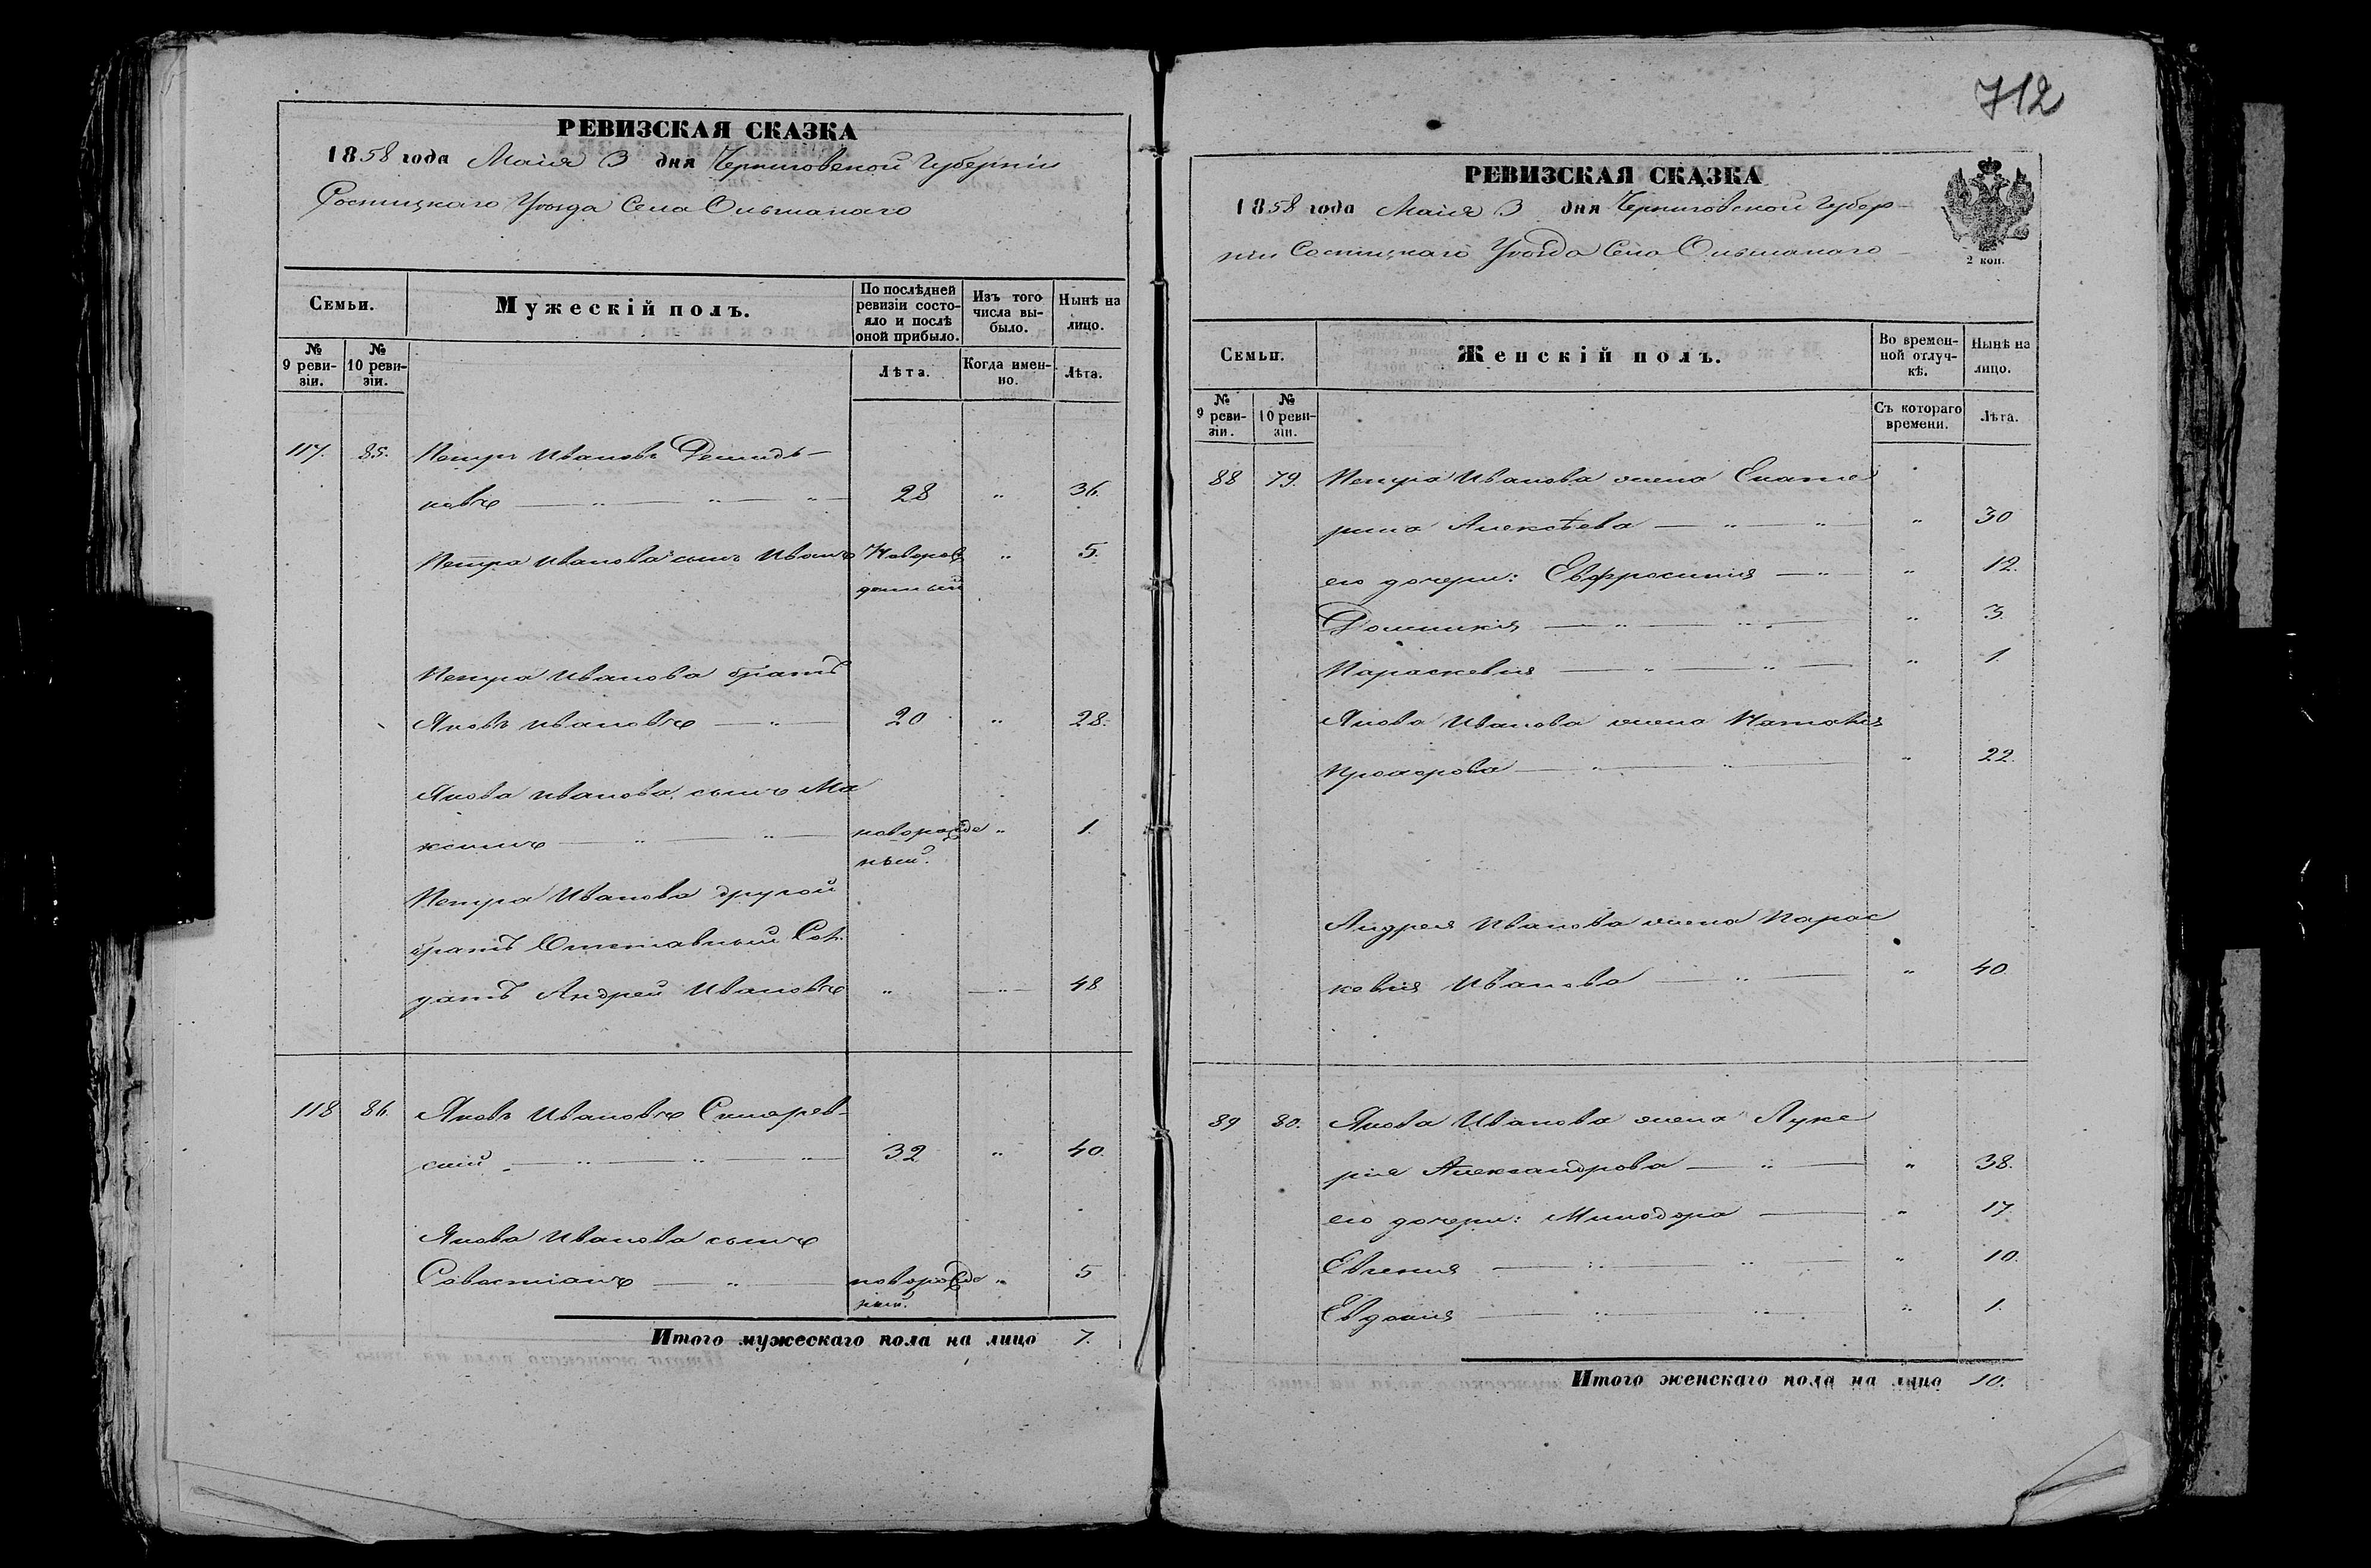 РЕВИЗСКАЯ СКАЗКА
1858 года Маія 3 дня Черниговской Губерніи
Сосницкаго Уѣзда Села Ольшанаго
Семьи.
Мужескій полъ.
По послѣдней ревизіи состояло и послѣ оной прибыло.
Изъ того числа выбыло.
Нынѣ на лицо.
№ 9 ревизіи.
№ 10 ревизіи.
Лѣта.
Когда именно.
Лѣта.
117. 85. Петръ Ивановъ Демидь-
ковъ — " — " — " — 28 " 36.
Петра Иванова сынъ Иванъ Новорож " 5.
денный
Петра Иванова братъ
Яковъ Ивановъ — " — 20 " 28.
Якова Иванова сынъ Ма
ксимъ — " — " — новорожде " 1.
ный.
Петра Иванова другой
братъ Отставный Сол
датъ Андрей Ивановъ " — " — 48
118 86. Яковъ Ивановъ
скій — " — " — " — 32 " 40.
Якова Иванова сынъ
Савастіанъ — " — новорожде " 5
ный.
Итого мужескаго пола на лицо 7.
712
РЕВИЗСКАЯ СКАЗКА
1858 года Маія 3 дня Черниговской Губер-
ніи Сосницкаго Уѣзда Села Ольшанаго
2 коп.
Семьи.
Женскій полъ.
Во временной отлучкѣ.
Нынѣ на лицо.
№ 9 ревизіи.
№ 10 ревизіи.
Съ котораго времени.
Лѣта.
88 79. Петра Иванова жена Екате
рина Алексѣева — " — " — " 30
его дочери: Евфросинія — " — " 12.
Домникія — " — " — " 3.
Параскевія — " — " — " 1.
Якова Иванова жена Наталія
— " — " — " 22.
Андрея Иванова жена Парас
кевія Иванова — " — " 40
89 80. Якова Иванова жена Луке
рія Александрова — " — " 38.
его дочери: Минодора — " 17
Евгенія — " — " — " 10.
Евдокія — " — " — " 1.
Итого женскаго пола на лицо 10.